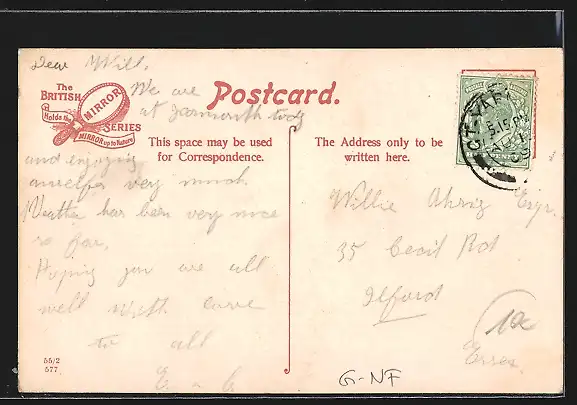 Dear Will,
We are
at Yarmouth today
and enjoying
ourselfs very much.
Weather has been very nice
so far.
Hoping you are all
well with love
to all
E & G
The
BRITISH
MIRROR
Holds the
SERIES
MIRROR up to Nature
Postcard.
This space may be used
for Correspondence.
The Address only to be
written here.
Willie Esqr.
35 Cecil Rd
Ilford
Essex
55/2
577
G-NF